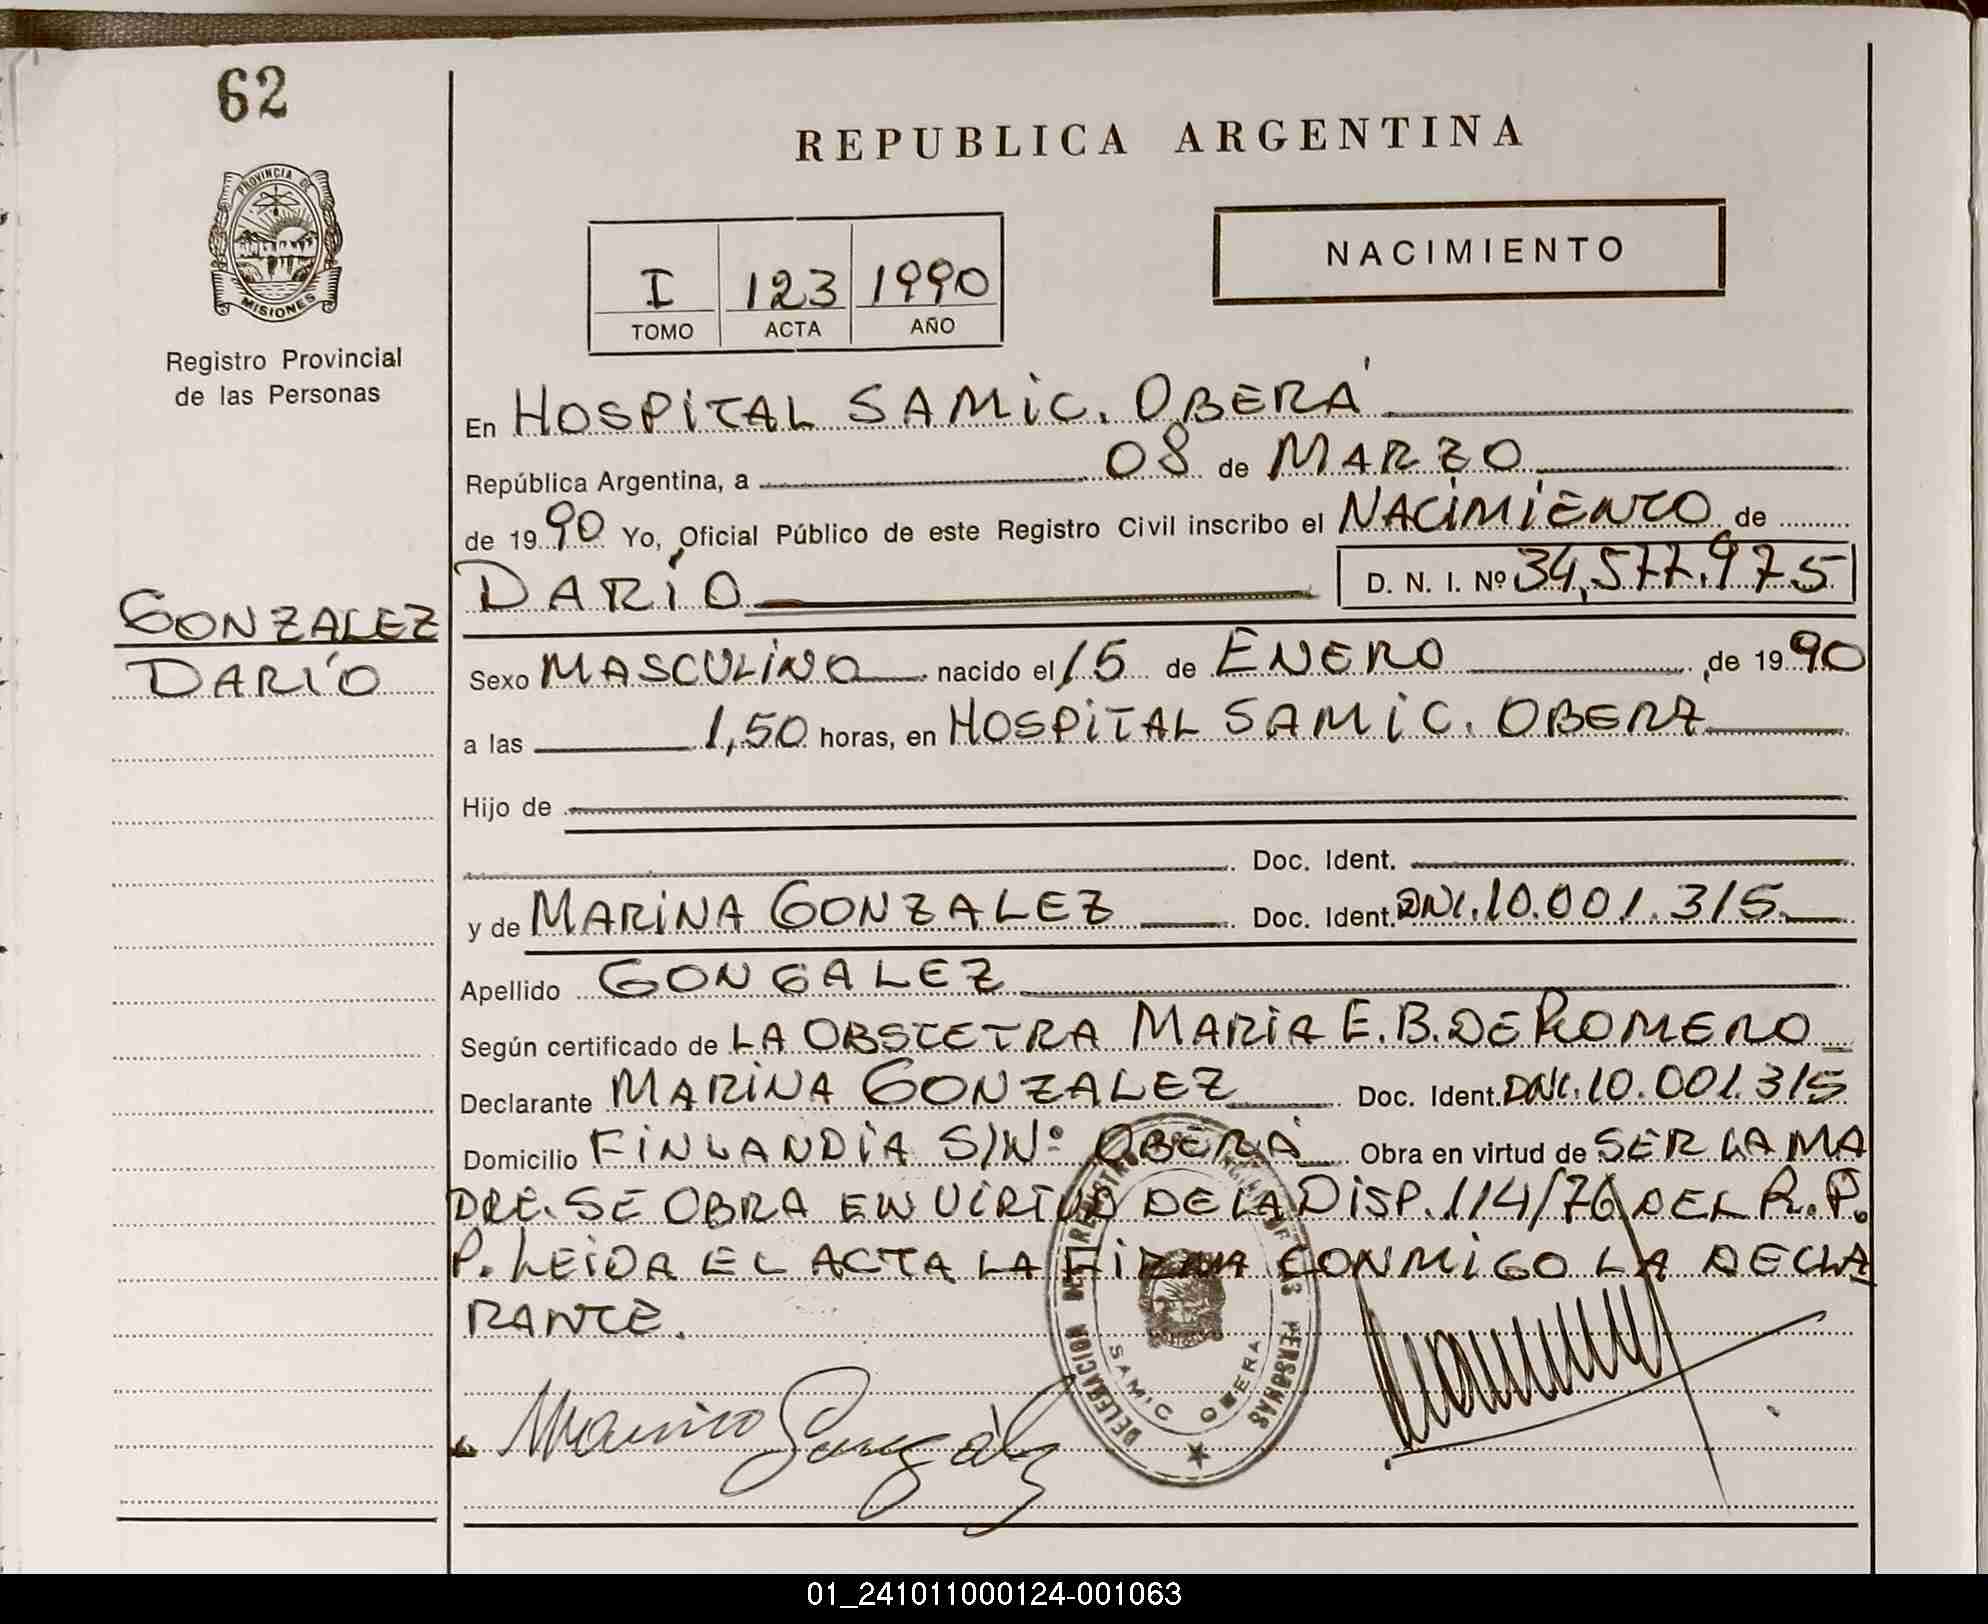 62
PROVINCIA DE
MISIONES
Registro Provincial
de las Personas
REPUBLICA ARGENTINA
NACIMIENTO
I 123 1990
TOMO ACTA AÑO
En HOSPITAL SAMIC. OBERÁ
República Argentina, a 08 de MARZO
de 1990 Yo, Oficial Público de este Registro Civil inscribo el NACIMIENTO de
DARÍO D. N. I. Nº 34,577.975
GONZALEZ
DARÍO
Sexo MASCULINO nacido el 15 de ENERO de 1990
a las 1,50 horas, en HOSPITAL SAMIC. OBERA
Hijo de
Doc. Ident.
y de MARINA GONZALEZ Doc. Ident. DNI. 10.001.315
Apellido GONGALEZ
Según certificado de LA OBSTETRA MARIA E. B. DE ROMERO
Declarante MARINA GONZALEZ Doc. Ident. DNI. 10.001.315
Domicilio FINLANDIA S/Nº OBERÁ Obra en virtud de SER LA MA
DRE. SE OBRA EN VIRTUD DE LA DISP. 114/76 DEL R. P.
P. LEIDA EL ACTA LA FIRMA CONMIGO LA DECLA
RANTE.
DELEGACION DEL REGISTRO PERSONAS
SAMIC OBERA
01_241011000124-001063